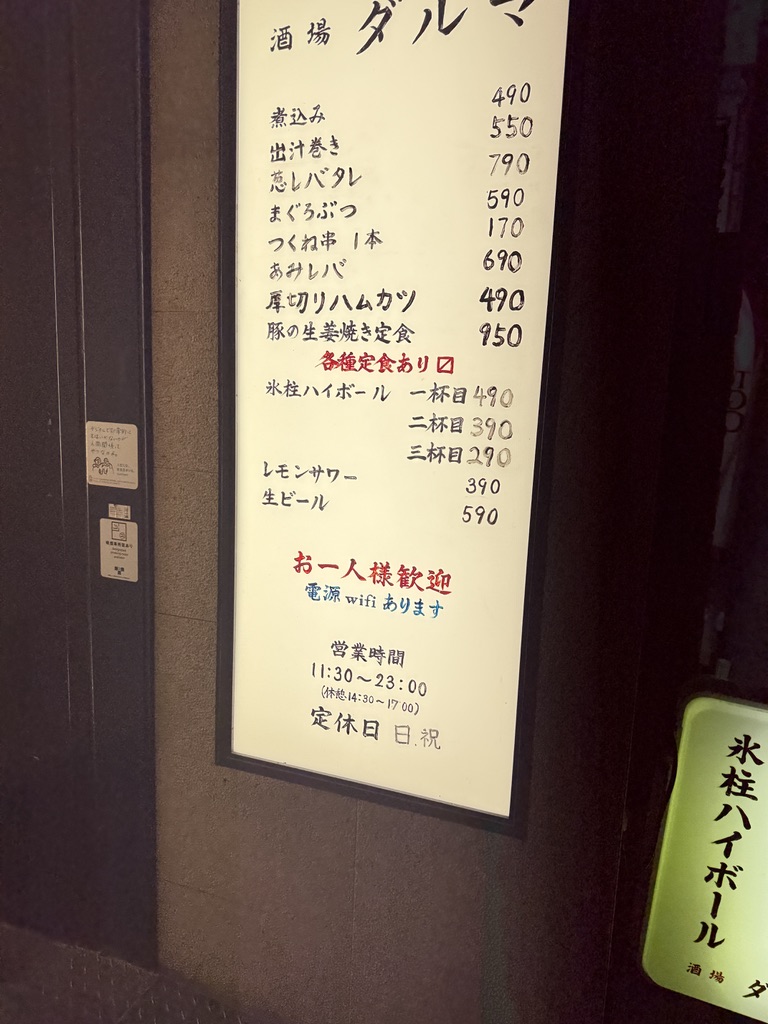 酒場 ダルマ
煮込み 490
出汁巻き 550
葱レバタレ 790
まぐろぶつ 590
つくね串 1本 170
あみレバ 690
厚切りハムカツ 490
豚の生姜焼き定食 950
各種定食あり〼
氷柱ハイボール 一杯目 490
二杯目 390
三杯目 290
レモンサワー 390
生ビール 590
お一人様歓迎
電源 wifi あります
営業時間
11:30〜23:00
(休憩 14:30〜17:00)
定休日 日.祝
氷柱ハイボール
酒場 ダ